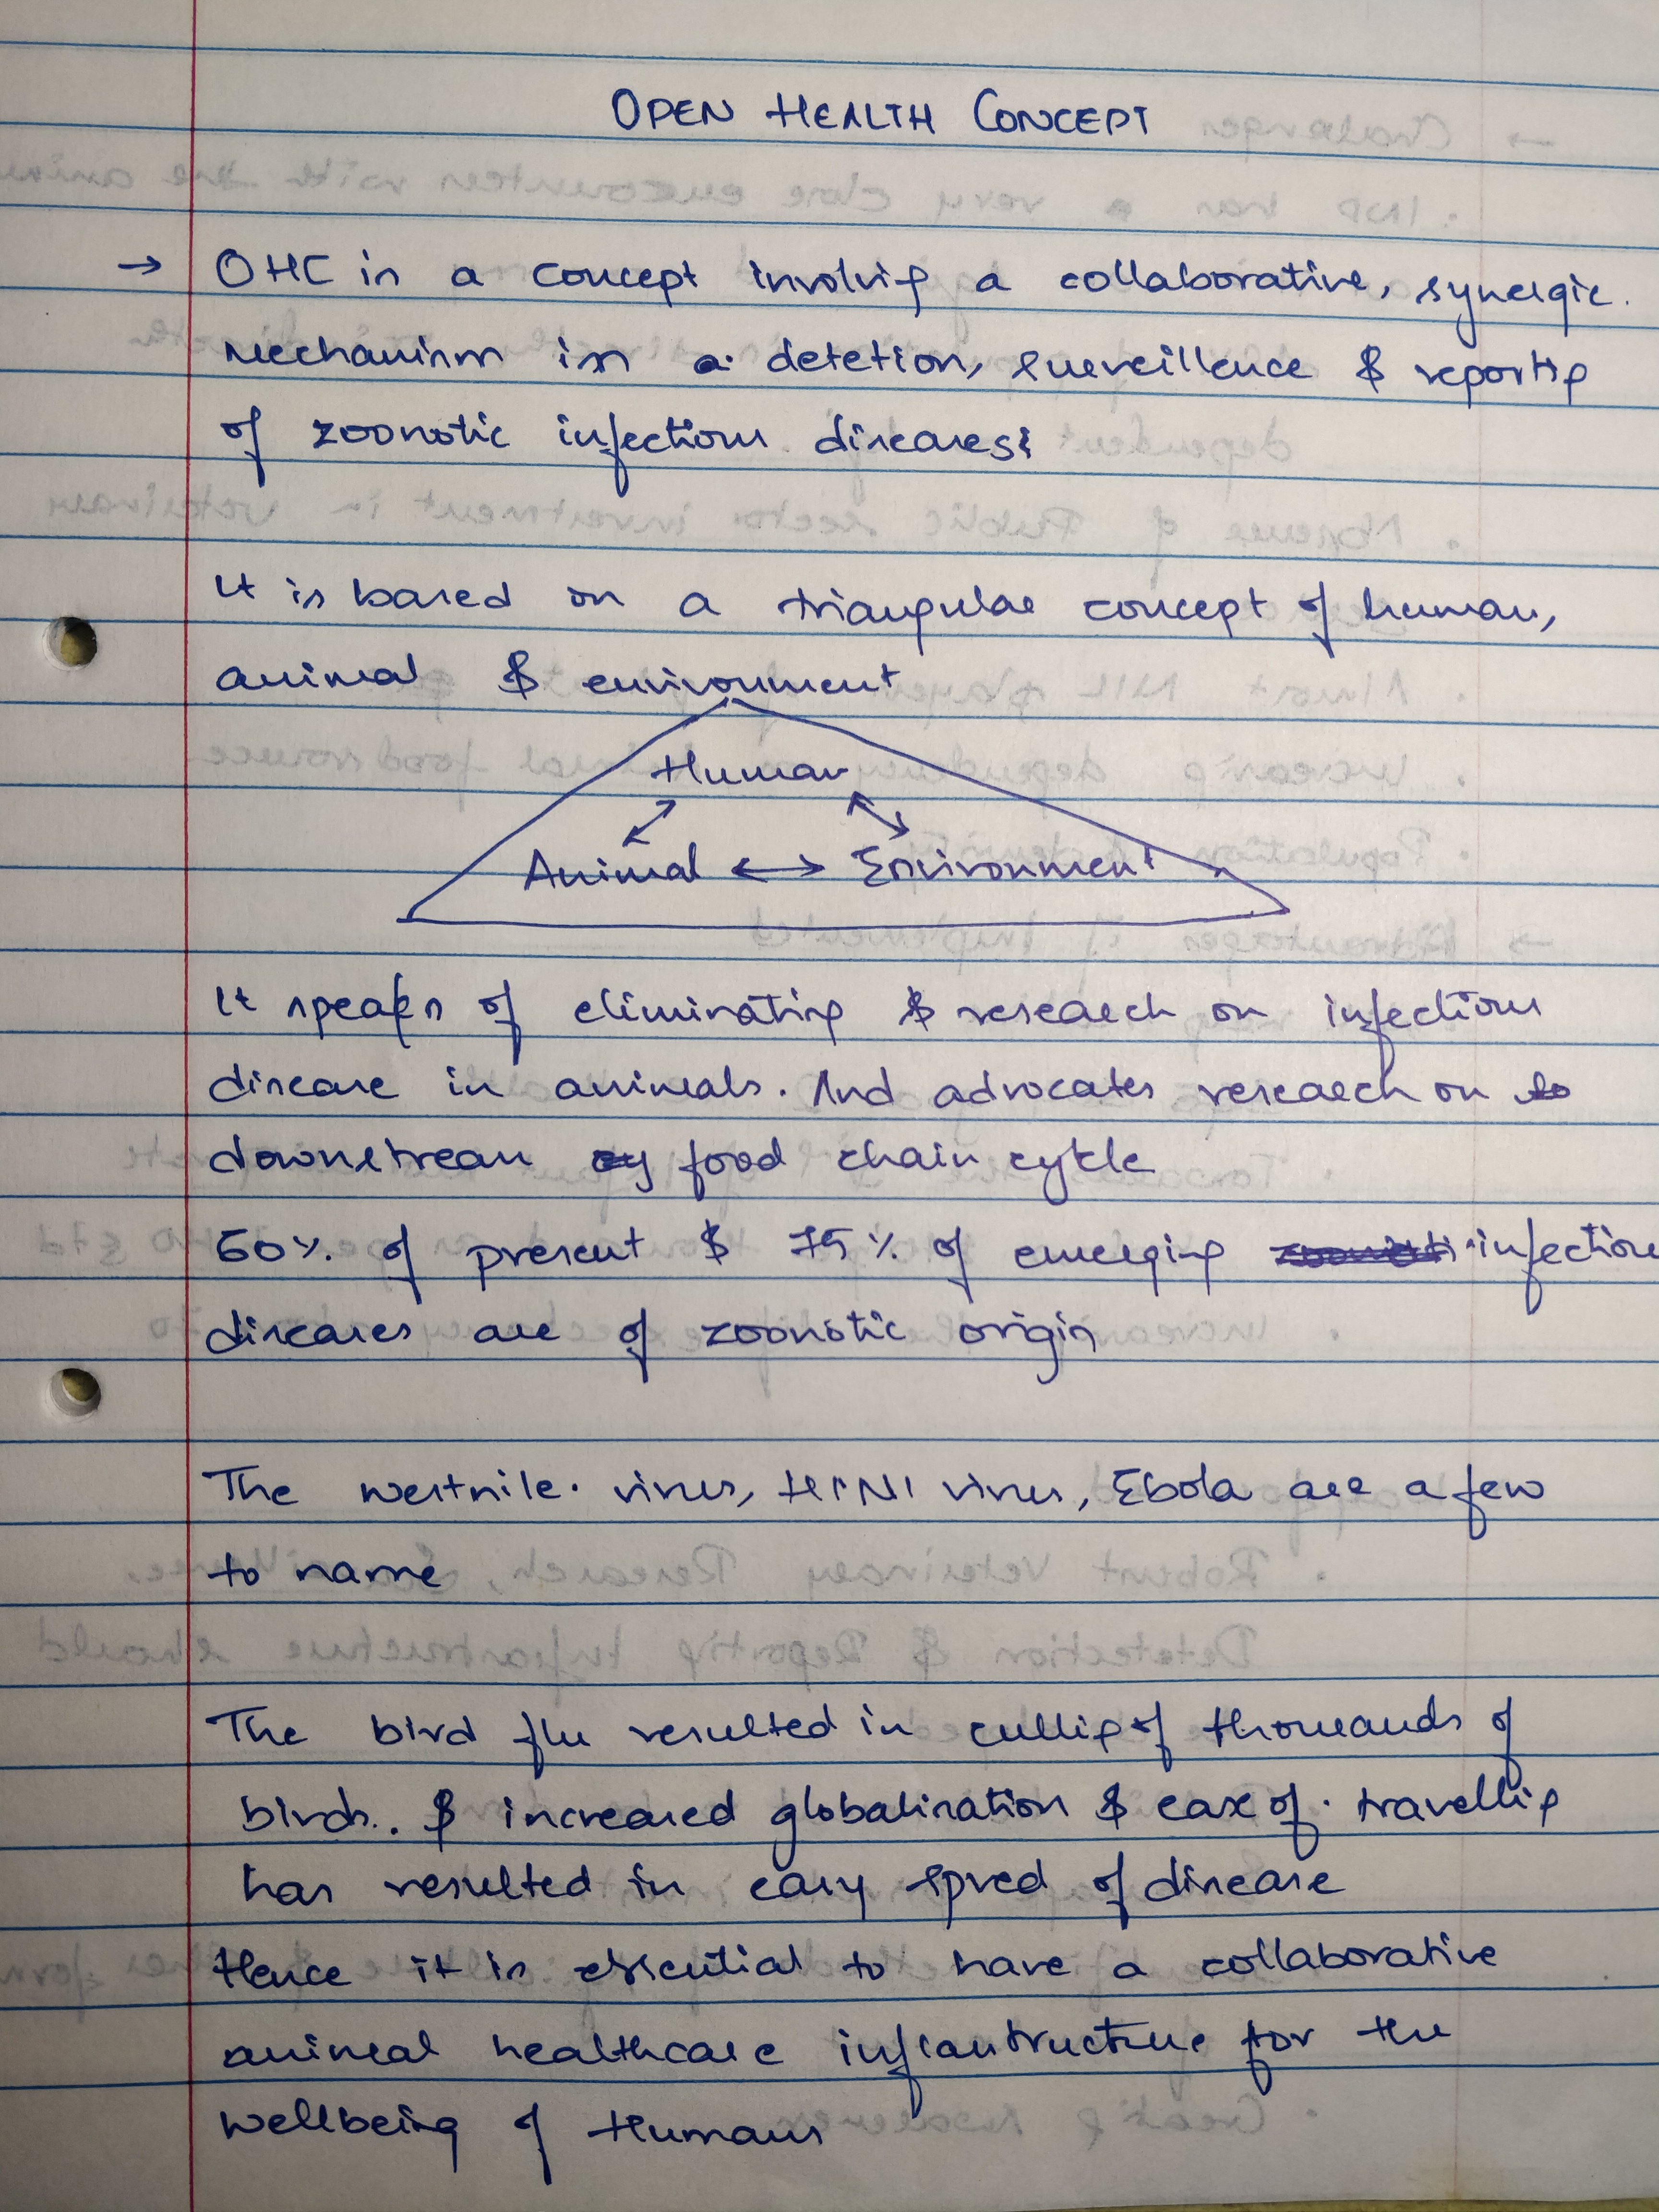 OPEN HEALTH CONCEPT
→ OHC is a concept involving a collaborative, synergic
Mechanism in a detetion, surveillence & reporting
of zoonotic infectious diseases:
It is based on a triangular concept of human,
animal & environment
Human
Animal ↔ Environment
It speaks of eliminating & research on infectious
disease in animals. And advocates research on
downstream food chain cycle
60% of present & 75% of emerging infectious
diseases are of zoonotic origin
The westnile virus, H1N1 virus, Ebola are a few
to name
The bird flu resulted in culling of thousands of
birds. & increased globalisation & ease of travelling
has resulted in easy spred of disease
Hence it is essential to have a collaborative
animal healthcare infrastructure for the
Wellbeing of Humans